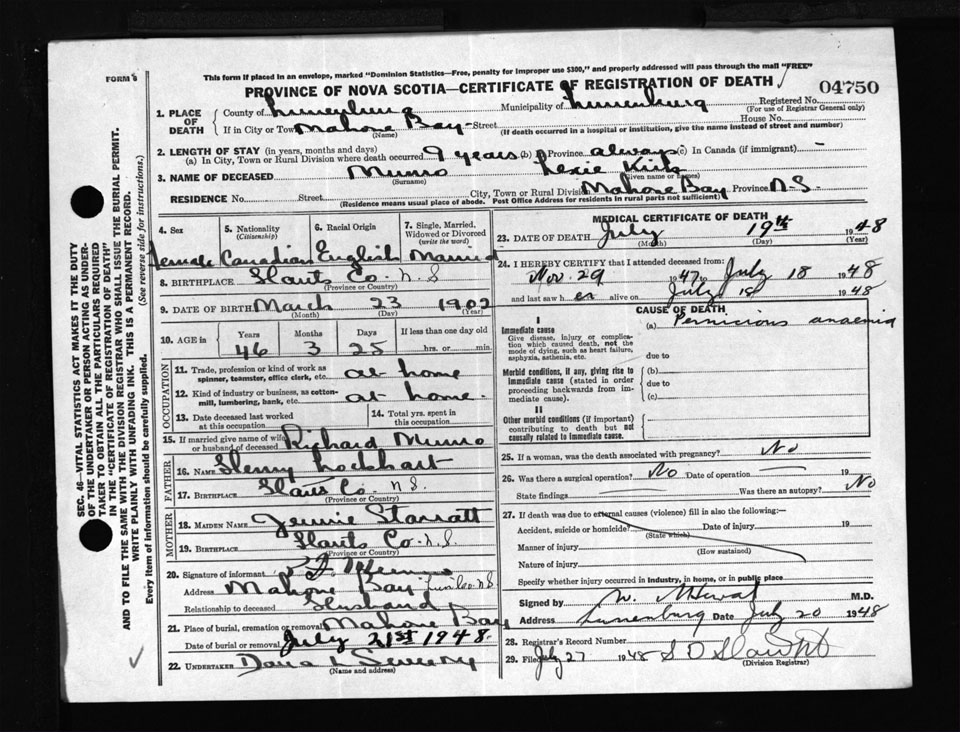 FORM 6
This form if placed in an envelope, marked "Dominion Statistics—Free, penalty for improper use $300," and properly addressed will pass through the mail "FREE"
PROVINCE OF NOVA SCOTIA—CERTIFICATE OF REGISTRATION OF DEATH
04750
1. PLACE OF DEATH
County of Lunenburg Municipality of Lunenburg Registered No.
(For use of Registrar General only)
If in City or Town Mahone Bay Street House No.
(Name) (If death occurred in a hospital or institution, give the name instead of street and number)
2. LENGTH OF STAY (in years, months and days)
(a) In City, Town or Rural Division where death occurred 9 years (b) Province always (c) In Canada (if immigrant) -
3. NAME OF DECEASED Munro
(Surname) (Given name or names)
RESIDENCE No. Street City, Town or Rural Division Mahone Bay Province N.S.
(Residence means usual place of abode. Post Office Address for residents in rural parts not sufficient)
4. Sex 5. Nationality (Citizenship) 6. Racial Origin 7. Single, Married, Widowed or Divorced (write the word)
Female Canadian English Married
8. BIRTHPLACE Hants Co. N.S.
(Province or Country)
9. DATE OF BIRTH March 23 1902
(Month) (Day) (Year)
10. AGE in Years Months Days If less than one day old
46 3 25 hrs. or min.
OCCUPATION
11. Trade, profession or kind of work as spinner, teamster, office clerk, etc. at home
12. Kind of industry or business, as cotton-mill, lumbering, bank, etc. at home.
13. Date deceased last worked at this occupation
14. Total yrs. spent in this occupation
15. If married give name of wife or husband of deceased Richard Munro
FATHER
16. NAME Henry Lockhart
17. BIRTHPLACE Hants Co. N.S.
(Province or Country)
MOTHER
18. MAIDEN NAME Jennie Starratt
19. BIRTHPLACE Hants Co. N.S.
(Province or Country)
20. Signature of informant Munro
Address Mahone Bay Lun. Co. N.S.
Relationship to deceased Husband
21. Place of burial, cremation or removal Mahone Bay
Date of burial or removal July 21st 1948.
22. UNDERTAKER
(Name and address)
MEDICAL CERTIFICATE OF DEATH
23. DATE OF DEATH July 19th 1948
(Month) (Day) (Year)
24. I HEREBY CERTIFY that I attended deceased from
Nov. 29 1947 to July 18 1948
and last saw her alive on July 18 1948
CAUSE OF DEATH
I
Immediate cause
Give disease, injury or complication which caused death, not the mode of dying, such as heart failure, asphyxia, asthenia, etc.
(a) Pernicious anaemia
due to
Morbid conditions, if any, giving rise to immediate cause (stated in order proceeding backwards from immediate cause).
(b)
due to
(c)
II
Other morbid conditions (if important) contributing to death but not causally related to immediate cause.
25. If a woman, was the death associated with pregnancy? No
26. Was there a surgical operation? No Date of operation 19
State findings Was there an autopsy? No
27. If death was due to external causes (violence) fill in also the following:—
Accident, suicide or homicide? Date of injury 19
(State which)
Manner of injury
(How sustained)
Nature of injury
Specify whether injury occurred in industry, in home, or in public place
Signed by M.D.
Address Lunenburg Date July 20 1948
28. Registrar's Record Number
29. File July 27 1948
(Division Registrar)
SEC. 46—VITAL STATISTICS ACT MAKES IT THE DUTY
OF THE UNDERTAKER OR PERSON ACTING AS UNDER-
TAKER TO OBTAIN ALL THE PARTICULARS REQUIRED
IN THE "CERTIFICATE OF REGISTRATION OF DEATH"
AND TO FILE THE SAME WITH THE DIVISION REGISTRAR WHO SHALL ISSUE THE BURIAL PERMIT.
WRITE PLAINLY WITH UNFADING INK. THIS IS A PERMANENT RECORD.
Every item of information should be carefully supplied. (See reverse side for instructions.)